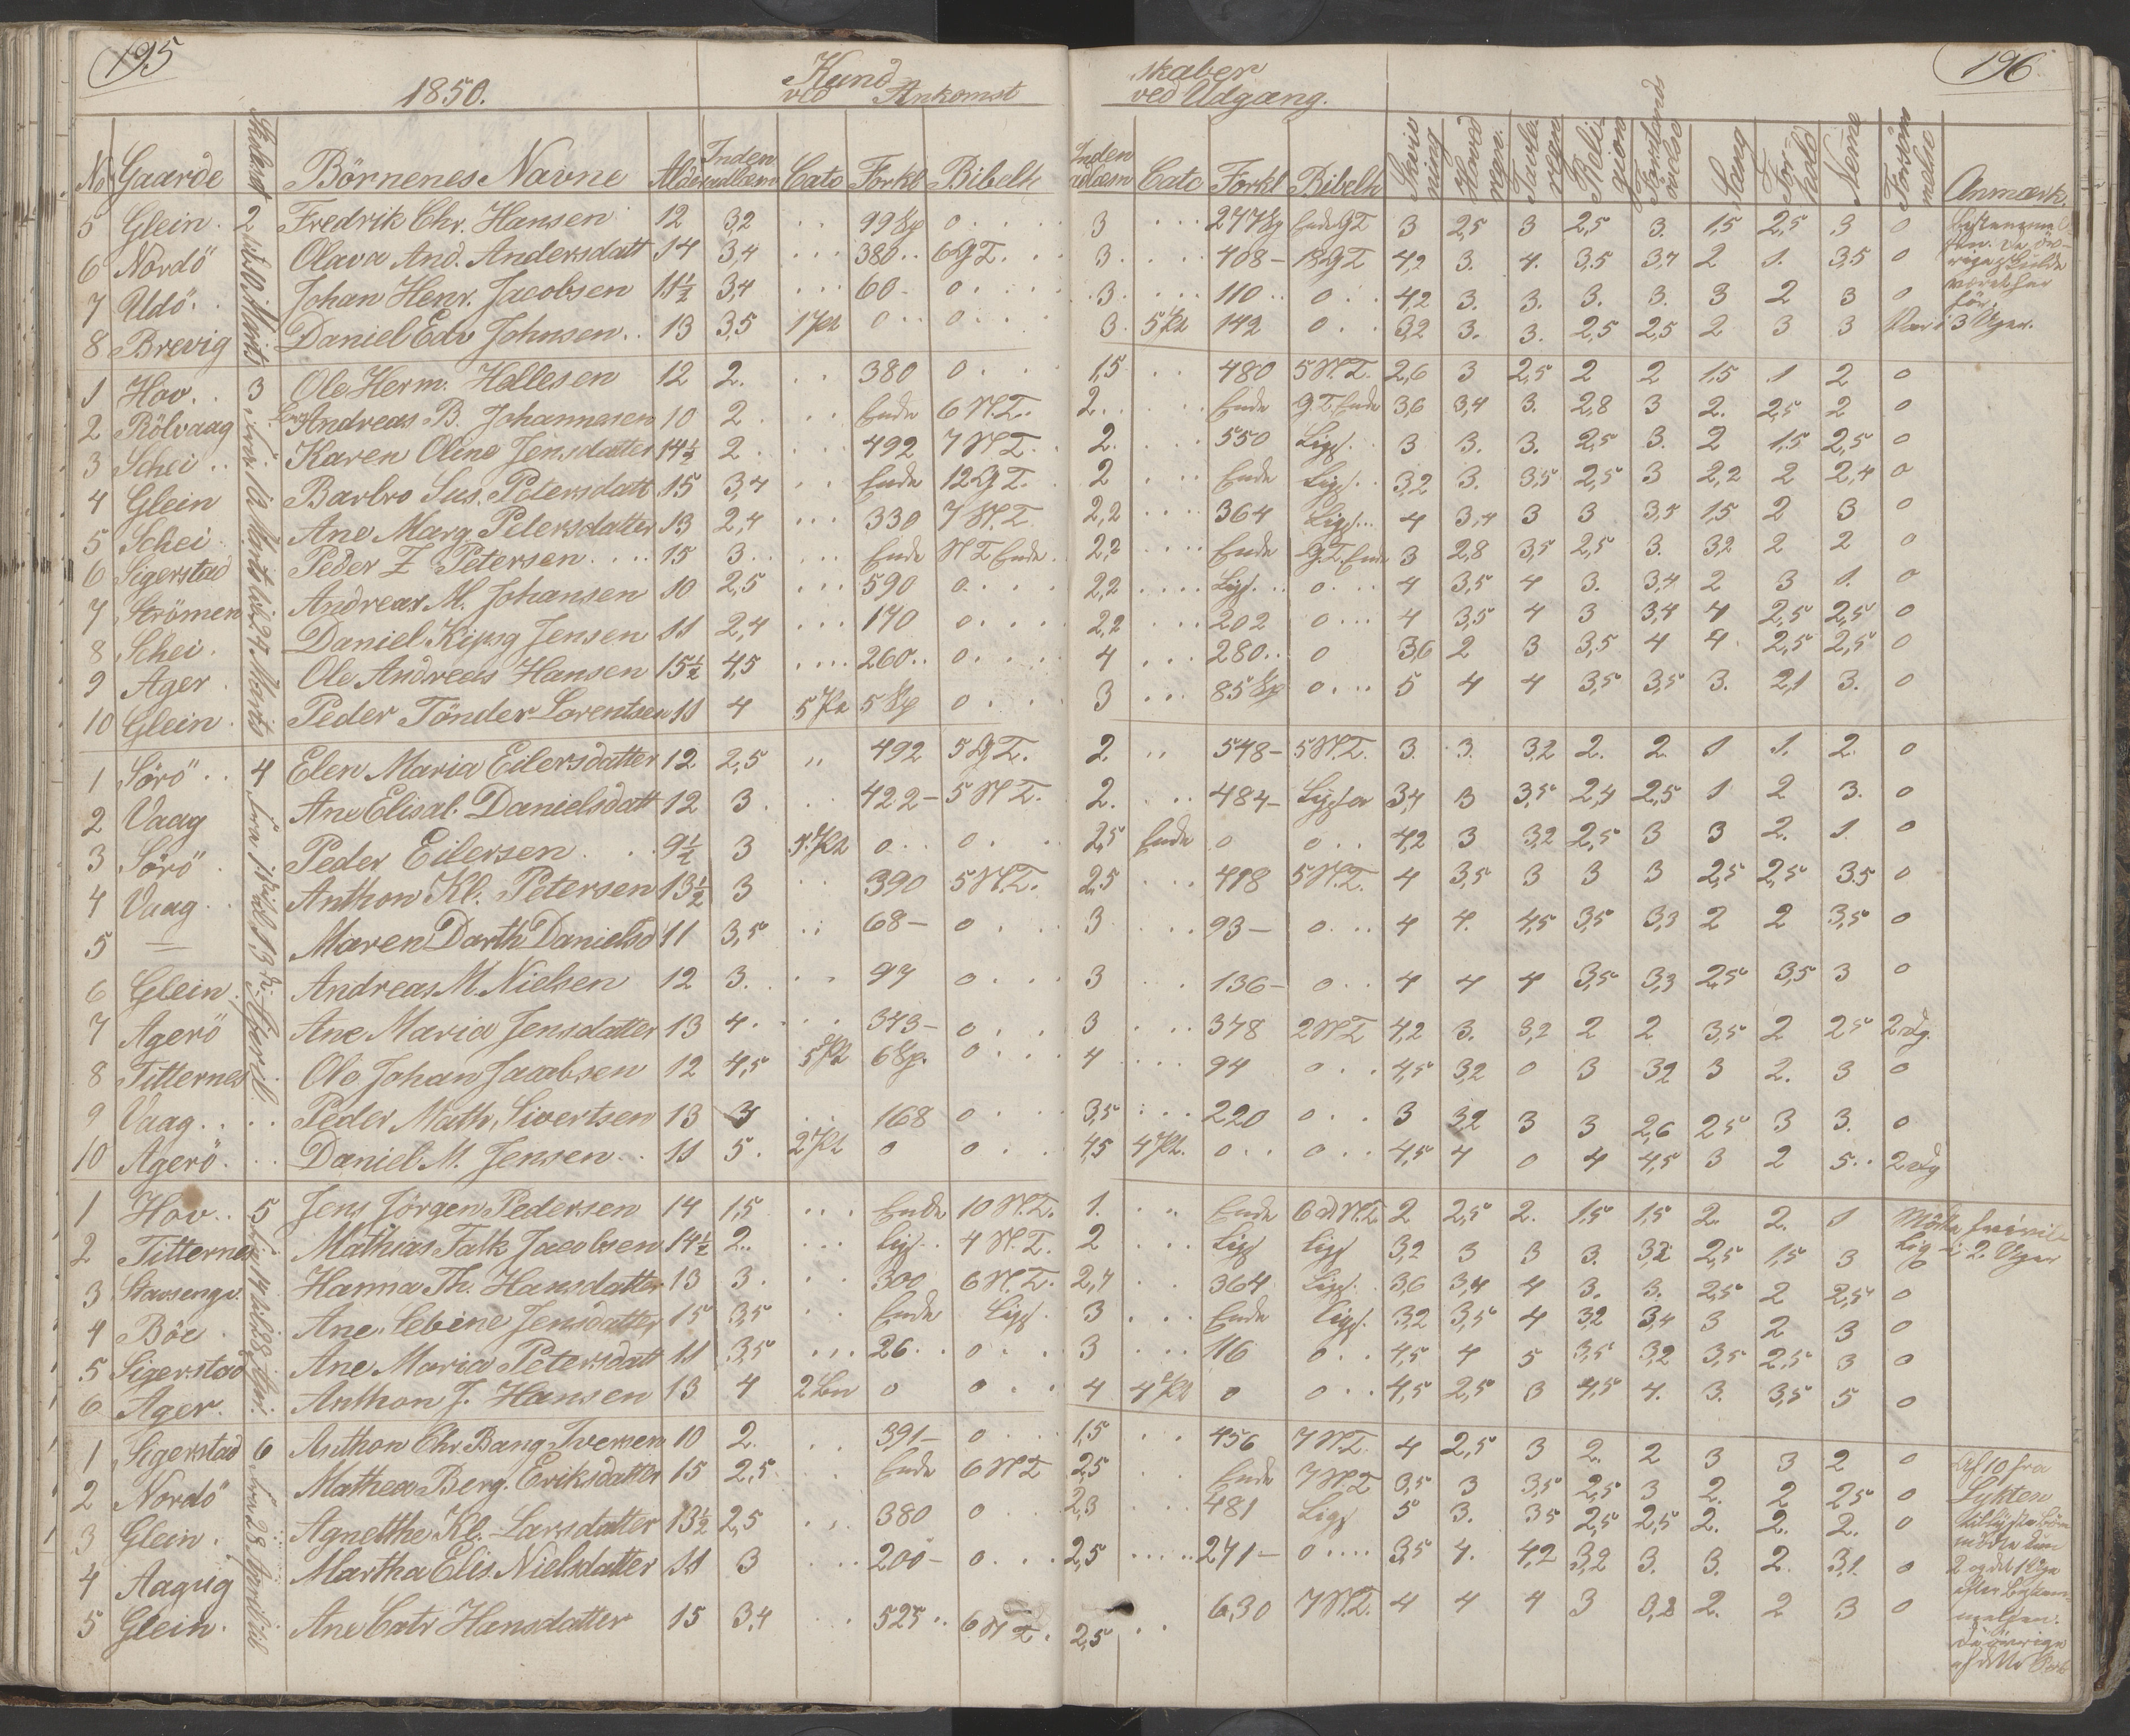 195
1850.
Kund
ved Ankomst
skaber
ved Udgang.
196.
No Gaarde Skolernes Börnenes Navne Alder Inden udlæsn Catc Forkl Bibelh Inden udlæsn Catc Forkl Bibelh Skriv ning Hoved regn. Tavle regn Reli gion Forstands Sang For hold Nemme Forsöm melse Anmærk.
5 Glein . 2 Fredrik Chr. Hansen 12 3,2 . . 99 Sp 0 . . . 3 . . . 277 Sp Ende GT 3 2,5 3 2,5 3. 1,5 2,5 3 0
6 Nordö Olava And. Andersdatt 14 3,4 . . . 380 . . 6 GT . . . 3 . . . 408 – 18 GT 4,2 3. 4. 3,5 3,4 2 1. 3,5 0
7 Udö . . Johan Henr. Jacobsen 11½ 3,4 . . . 60 . 0 . . . 3 . . . 110 . . 0 . . 4,2 3. 3. 3. 3. 3 2 3 0
8 Brevig Daniel Edv Johnsen . . 13 3,5 1 Pt 0 . . 0 . . . 3. 5 Pt 142 0 . . 3,2 3. 3. 2,5 2,5 2 3 3 Var i 3 Uger.
1 Hov . . 3 Ole Herm. Hellesen 12 2. . . 380 0 . . . 1,5 . . 480 5 N.T. 2,6 3 2,5 2 2 1,5 1 2 0
2 Rölvaag Andreas B. Johannesen 10 2 . . . Ende 6 NT . . 2. . . . Ende G.T. Ende 3,6 3,4 3. 2,8 3 2. 2,5 2 0
3 Schei . . Karen Oline Jensdatter 14½ 2 . . . 492 7 N.T. . 2. . . . 550 Ligs. . 3 3. 3. 2,5 3. 2 1,5 2,5 0
4 Glein Barbro Sus. Petersdatt 15 3,4 . . Ende 12 GT. . 2 . . . Ende Ligs. . 3,2 3. 3,5 2,5 3 2,2 2 2,4 0
5 Schei . Ane Marg. Petersdatter 13 2,4 . . . 330 7 N.T. 2,2 . . . . 364 Ligs. . . 4 3,4 3 3 3,5 1,5 2 3 0
6 Sigerstad Peder Z Petersen . . . . 15 3 . . . . . Ende NT Ende . 2,2 . . . . Ende G.T. Ende 3 2,8 3,5 2,5 3. 3,2 2 2 0
7 Strömen Andreas M. Johansen 10 2,5 . . . 590 0 . . . 2,2 . . . . Ligs. . . 0 . . . 4 3,5 4 3. 3,4 2 3 1. 0
8 Schei . Daniel Kipsg Jensen 11 2,4 . . . 170 0 . . . . 2,2 . . . 202 0 . . . 4 3,5 4 3 3,4 4 2,5 2,5 0
9 Ager . Ole Andreas Hansen 15½ 4,5 . . . . 260 . . 0 . . . . 4 . . . 280 . . 0 3,6 2 3 3,5 4 4. 2,5 2,5 0
10 Glein . Peder Tönder Lorentsen 11 4 5 Pt 5 Sp 0 . . . 3 . . . 85 Sp 0 . . . 5 4 4 3,5 3,5 3. 2,1 3. 0
1 Sörö . . 4 Elen Maria Eilersdatter 12 2,5 „ 492 5 GT. 2. „ 548 – 5 N.T. 3. 3. 3,2 2. 2. 1 1. 2. 0
2 Vaag Ane Elisab. Danielsdatt 12 3 . . . 422 – 5 NT. 2. . . . 484 – Ligsaa 3,4 3 3,5 2,4 2,5 1 2 3. 0
3 Sörö . Peder Eilersen . . . 9½ 3 5. Pt 0 . . 0 . . . 2,5 Ende 0 0 . . . 4,2 3 3,2 2,5 3 3 2. 1. 0
4 Vaag . . Anthon Kl. Petersen 13½ 3 . . 390 5 N.T. 2,5 . . . 498 5 N.T. 4 3,5 3 3 3 2,5 2,5 3.5 0
5 — Maren Dorth Danielsd 11 3,5 . . 68 – 0 . . . 3 . . . 93 – 0 . . . 4 4. 4,5 3,5 3,3 2 2 3,5 0
6 Glein . Andreas M. Nielsen 12 3. . . 99 0 . . . 3 . . 136 – 0 . . 4 4 4 3,5 3,3 2,5 3,5 3 0
7 Agerö Ane Maria Jensdatter 13 4. . . . 343 – 0 . . . 3 . . . 348 2 NT 4,2 3. 3,2 2 2 3,5 2 2,5 2 dg.
8 Titternes Ole Johan Jacobsen 12 4,5 5 Pt 6 Sp. 0 . . . 4 . . . 94 0 . . . 4,5 3,2 0 3 3,2 3 2. 3 0
9 Vaag . . . . Peder Math. Sivertsen 13 3 . . . 168 0 . . . 3,5 . . . 220 0 . . . 3 3,2 3 3 2,6 2,5 3 3. 0
10 Agerö . . . Daniel M. Jensen . . 11 5. 2 Pt 0 0 . . . 4,5 4 Pt. 0 . . 0 . . . 4,5 4 0 4 4,5 3 2 5 . . 2 dg
1 Hov . . 5 Jens Jörgen Pedersen 14 1,5 . . . Ende 10 N.T. 1. . . Ende 6 N.T. 2 2,5 2. 1,5 1,5 2. 2. 1
2 Titternes Mathias Falk Jacobsen 14½ 2 . . . . . Ligs. . 4 N.T. 2 . . . Ligs Ligs 3,2 3 3 3. 3,2 2,5 1,5 3 i 2. Uger
3 Stavsengv. Hanna Th. Hansdatter 13 3. . . 300 6 N.T. 2,4 . . 364 Ligs. . 3,6 3,4 4 3. 3. 2,5 2 2,5 0
4 Böe . Ane Sebine Jensdatter 15 3,5 . . Ende Ligs. 3 . . . Ende Ligs. 3,2 3,5 4 3,2 3,4 3 2 3 0
5 Sigerstad Ane Maria Petersdatt 11 3,5 . . . 26 . . 0 . . . 3 . . . 116 0 . . . 4,5 4 5 3,5 3,2 3,5 2,5 3 0
6 Ager . Anthon J. Hansen 13 4 2 Bn 0 0 . . . 4 4 Pt 0 0 . . . 4,5 2,5 3 4,5 4. 3. 3,5 5 0
1 Sigerstad 6 Anthon Chr. Bang Iversen 10 2. . . 391 – 0 . . . 1,5 . . 456 7 N.T. 4 2,5 3 2. 2 3 3 2 0 Af 10 fra
2 Nordö Mathea Berg. Eriksdatter 15 2,5 . . Ende 6 NT 2,5 . . Ende 7 N.T 3,5 3 3,5 2,5 3 2. 2 2,5 0 Lykten
3 Glein . Agnethe Kl. Larsdatter 13½ 2,5 . . . 380 0 . . . 2,3 . . . 481 Ligs 5 3. 3,5 2,5 2,5 2. 2. 2. 0
4 Aagug Martha Elis. Nielsdatter 11 3 . . . . 200 – 0 . . . 2,5 . . . . . 271 – 0 . . . . 3,5 4. 4,2 3,2 3. 3. 2. 3,1. 0
5 Glein . Ane Catr Hansdatter 15 3,4 . . 525 . . 6 NT. 2,5 . . 630 7 N.T. 4 4 4 3 3,2 2. 2 3 0